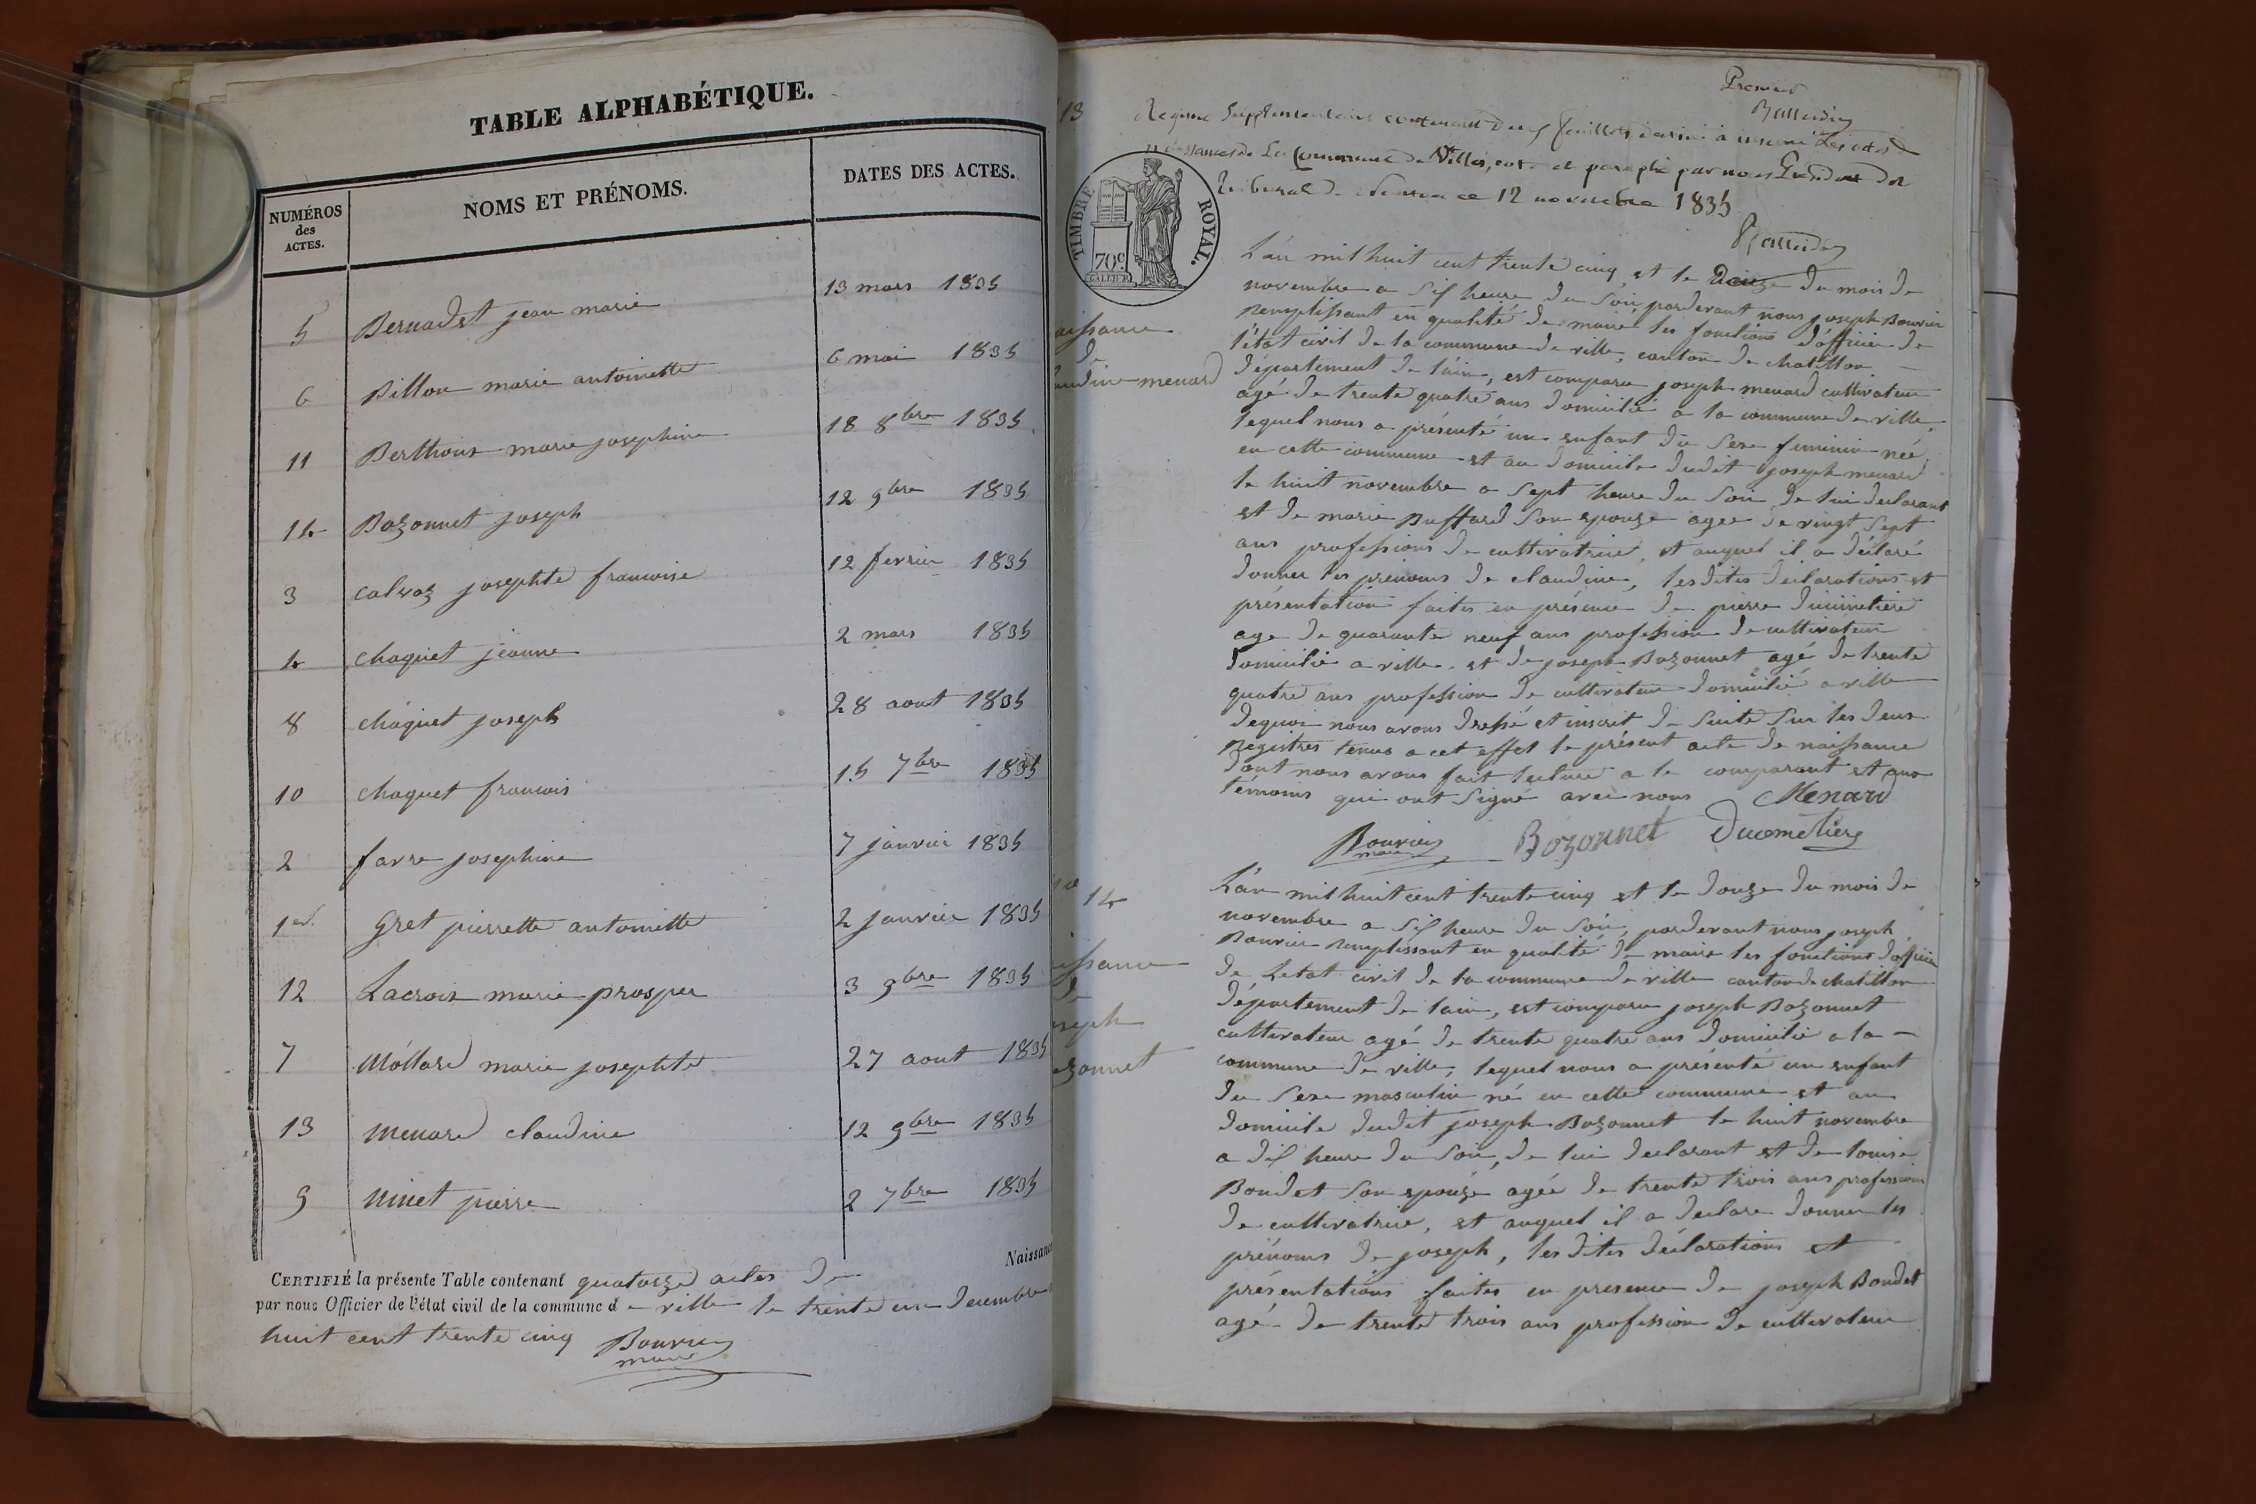 TABLE ALPHABÉTIQUE.
NUMÉROS des ACTES. NOMS ET PRÉNOMS. DATES DES ACTES.
5 Bernadet jean marie 13 mars 1835
6 Billon marie antoinette 6 mai 1835
11 Berthout marie josephine 18 8bre 1835
14 Bozonnet joseph 12 9bre 1835
3 calvoz josephte francoise 12 fevrier 1835
4 chaquet jeanne 2 mars 1835
8 chaquet joseph 28 aout 1835
10 chaquet francois 15 7bre 1835
2 favre josephine 7 janvier 1835
1er Gret pierrette antoinette 2 janvier 1835
12 Lacroix marie prosper 3 9bre 1835
7 Mollard marie josephte 27 aout 1835
13 menard claudine 12 9bre 1835
9 Ninet pierre 2 7bre 1835
Naissance
CERTIFIÉ la présente Table contenant quatorze actes de
par nous Officier de l'état civil de la commune de ville le trente un Decembre
huit cent trente cinq Bouvier
maire
Premier
13
Registre Supplementaire contenant deux feuillets destiné à inscrire les actes de
naissances de la Commune de Villes, coté et paraphé par nous President du
Tribunal de ce 12 novembre 1835
TIMBRE ROYAL.
70c
L'an mil huit cent trente cinq et le Douze du mois de
novembre a six heure du Soir, pardevant nous joseph Bouvier
Remplissant en qualité de maire les fonctions d'officier de
l'état civil de la commune de ville, canton de chatillon
département de l'ain, est comparu joseph menard cultivateur
agé de trente quatre ans domicilié a la commune de ville,
lequel nous a présenté un enfant du Sexe feminin née
en cette commune et au domicile dudit joseph menard
le huit novembre a Sept heure du Soir, de lui declarant
et de marie Buffard Son epouze agee de vingt Sept
ans professions de cultivatrice, et auquel il a déclaré
donner les prénoms de claudine, les dites declarations et
présentation faites en présence de pierre Ducimetiere
age de quarante neuf ans profession de cultivateur
domicilié a ville et de joseph Bozonnet agé de trente
quatre ans profession de cultivateur domicilié a ville
dequoi nous avons dressé et inscrit de Suite Sur les deux
Registres tenus a cet effet le présent acte de naissance
dont nous avons fait lecture a le comparant et aux
témoins qui ont Signé avec nous Menard
Bouvier maire Bozonnet Ducimetiere
aissance
de
audine menard
14
L'an mil huit cent trente cinq et le douze du mois de
novembre a Six heure du Soir, pardevant nous joseph
Bouvier Remplissant en qualité de maire les fonctions d'officier
de Letat civil de la commune de ville canton de chatillon
département de l'ain, est comparu joseph Bozonnet
cultivateur agé de trente quatre ans domicilié a la
commune de ville, lequel nous a présenté un enfant
du Sexe masculin né en cette commune et au
domicile dudit joseph Bozonnet le huit novembre
a dix heure du Soir, de lui declarant et de louise
Boudet Son epouze agée de trente trois ans profession
de cultivatrice, et auquel il a declare donner les
prénoms de joseph, les dites déclarations et
présentations faites en presence de joseph Boudet
agé de trente trois ans profession de cultivateur
issance
de
oseph
ozonnet